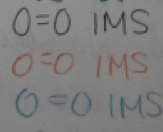 0=0 IMS
0=0 IMS
0=0 IMS